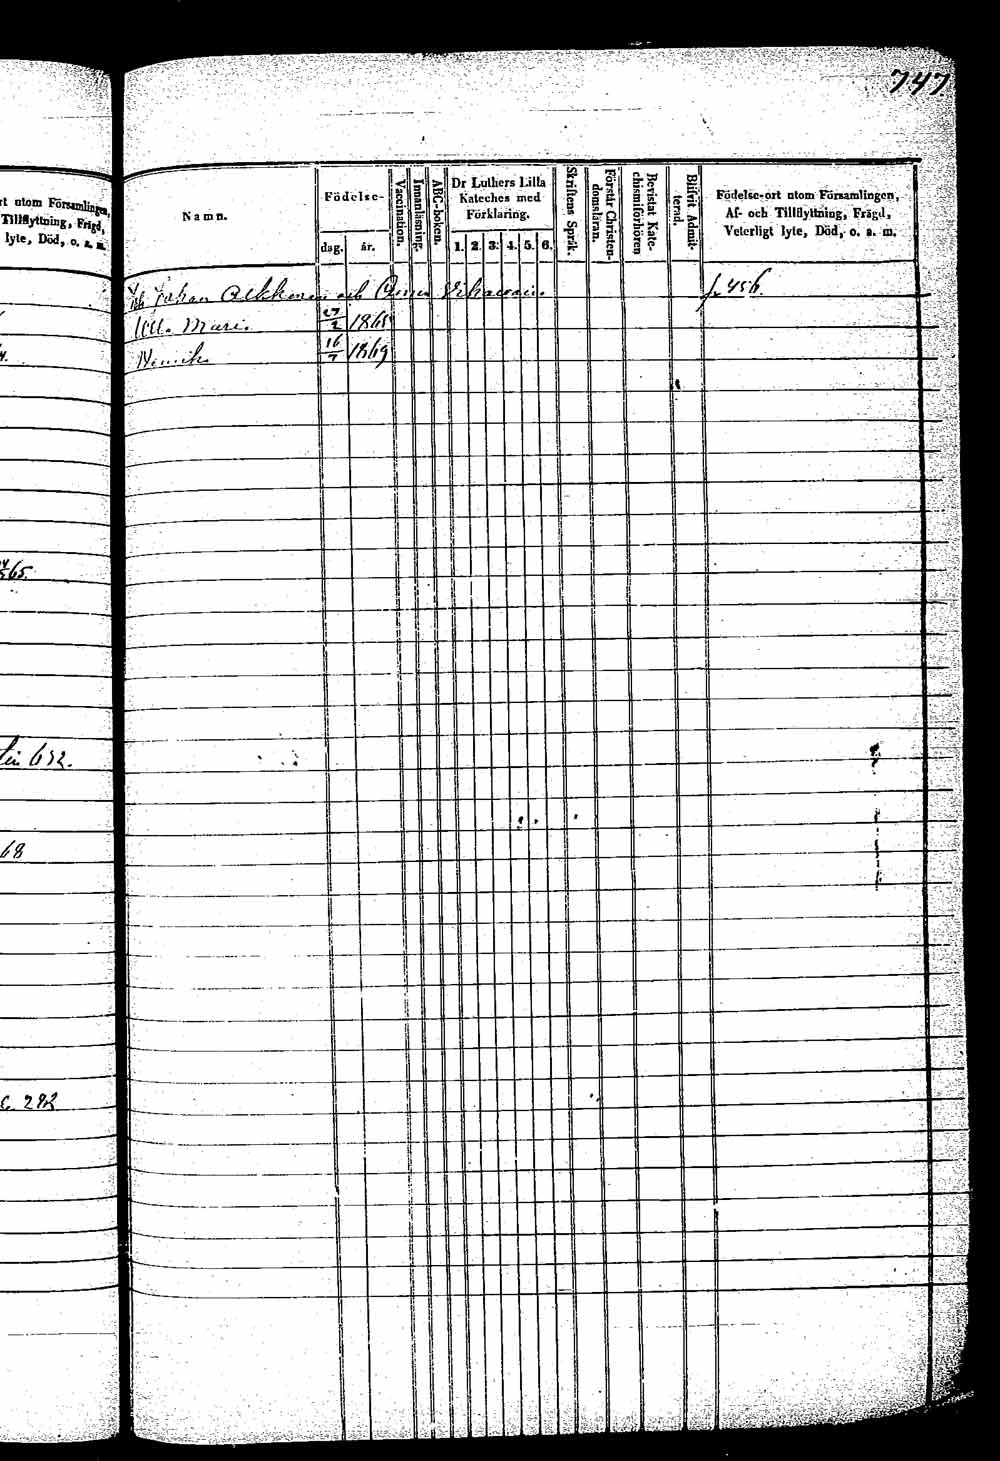 747
rt utom Församlingen,
Tillflyttning, Frägd,
lyte, Död, o. s. m.
Namn.
Födelse-
dag. år.
Vaccination.
Innanläsning.
ABC-boken.
Dr Luthers Lilla
Kateches med
Förklaring.
1. 2. 3. 4. 5. 6.
Skriftens Språk.
Förstår Christen-
domsläran.
Bevistat Kate-
chismiförhören
Blifvit Admit-
terad.
Födelse-ort utom Församlingen,
Af- och Tillflyttning, Frägd,
Veterligt lyte, Död, o. s. m.
Johan och Anna f. 456.
Maria 27/2 1865
Henrik 16/7 1869
65.
632.
68
282